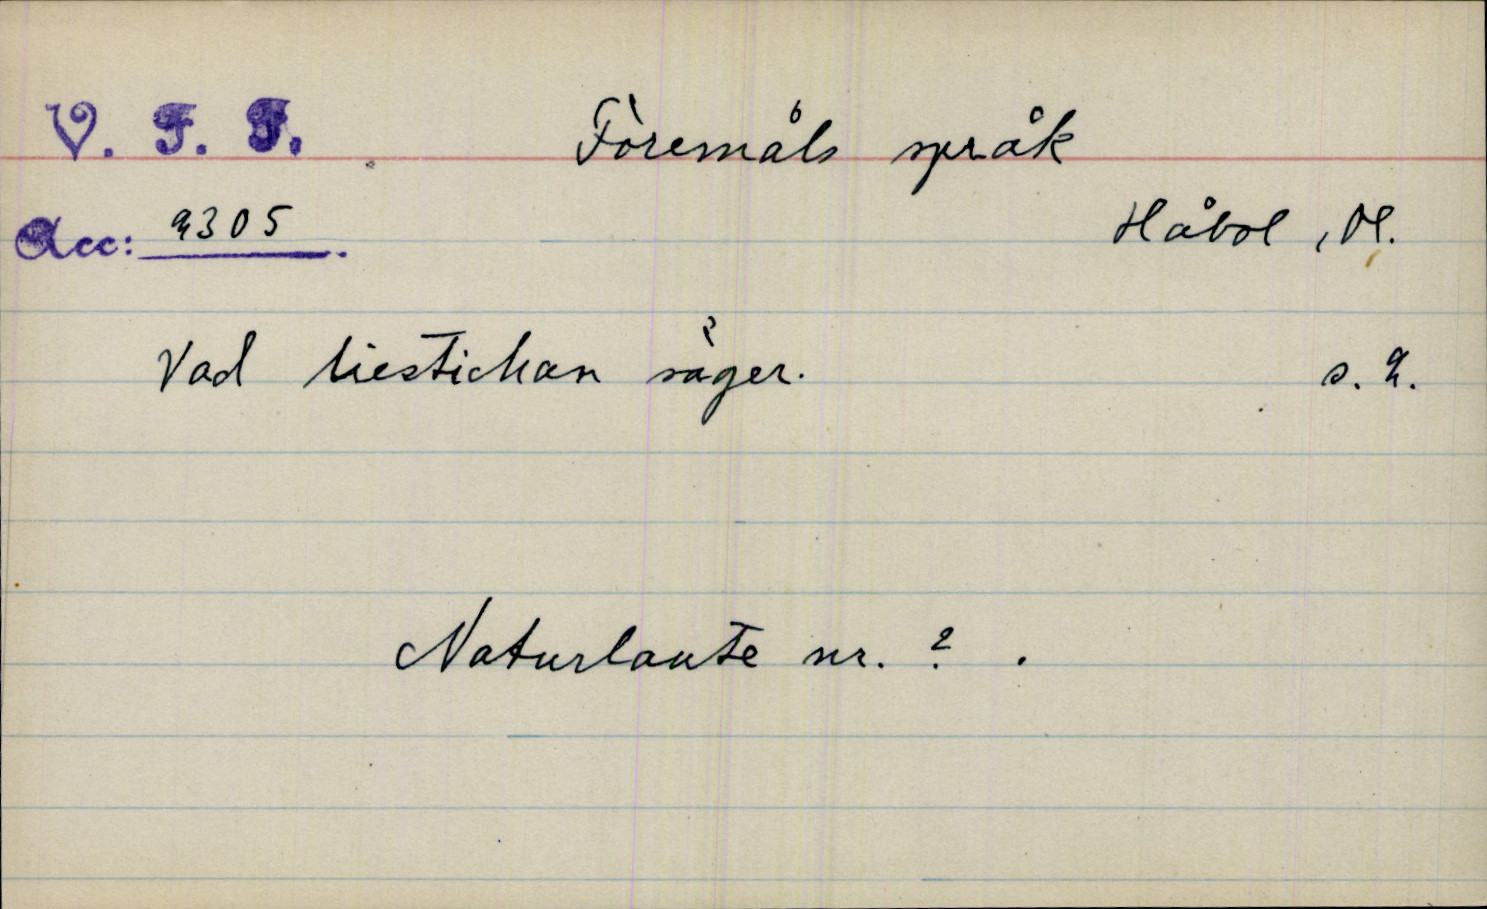 V. F. F. Föremåls språk
Acc: 2305. Håbol, Dl.
Vad liestickan säger. s. 2.
Naturlaute nr. ? .